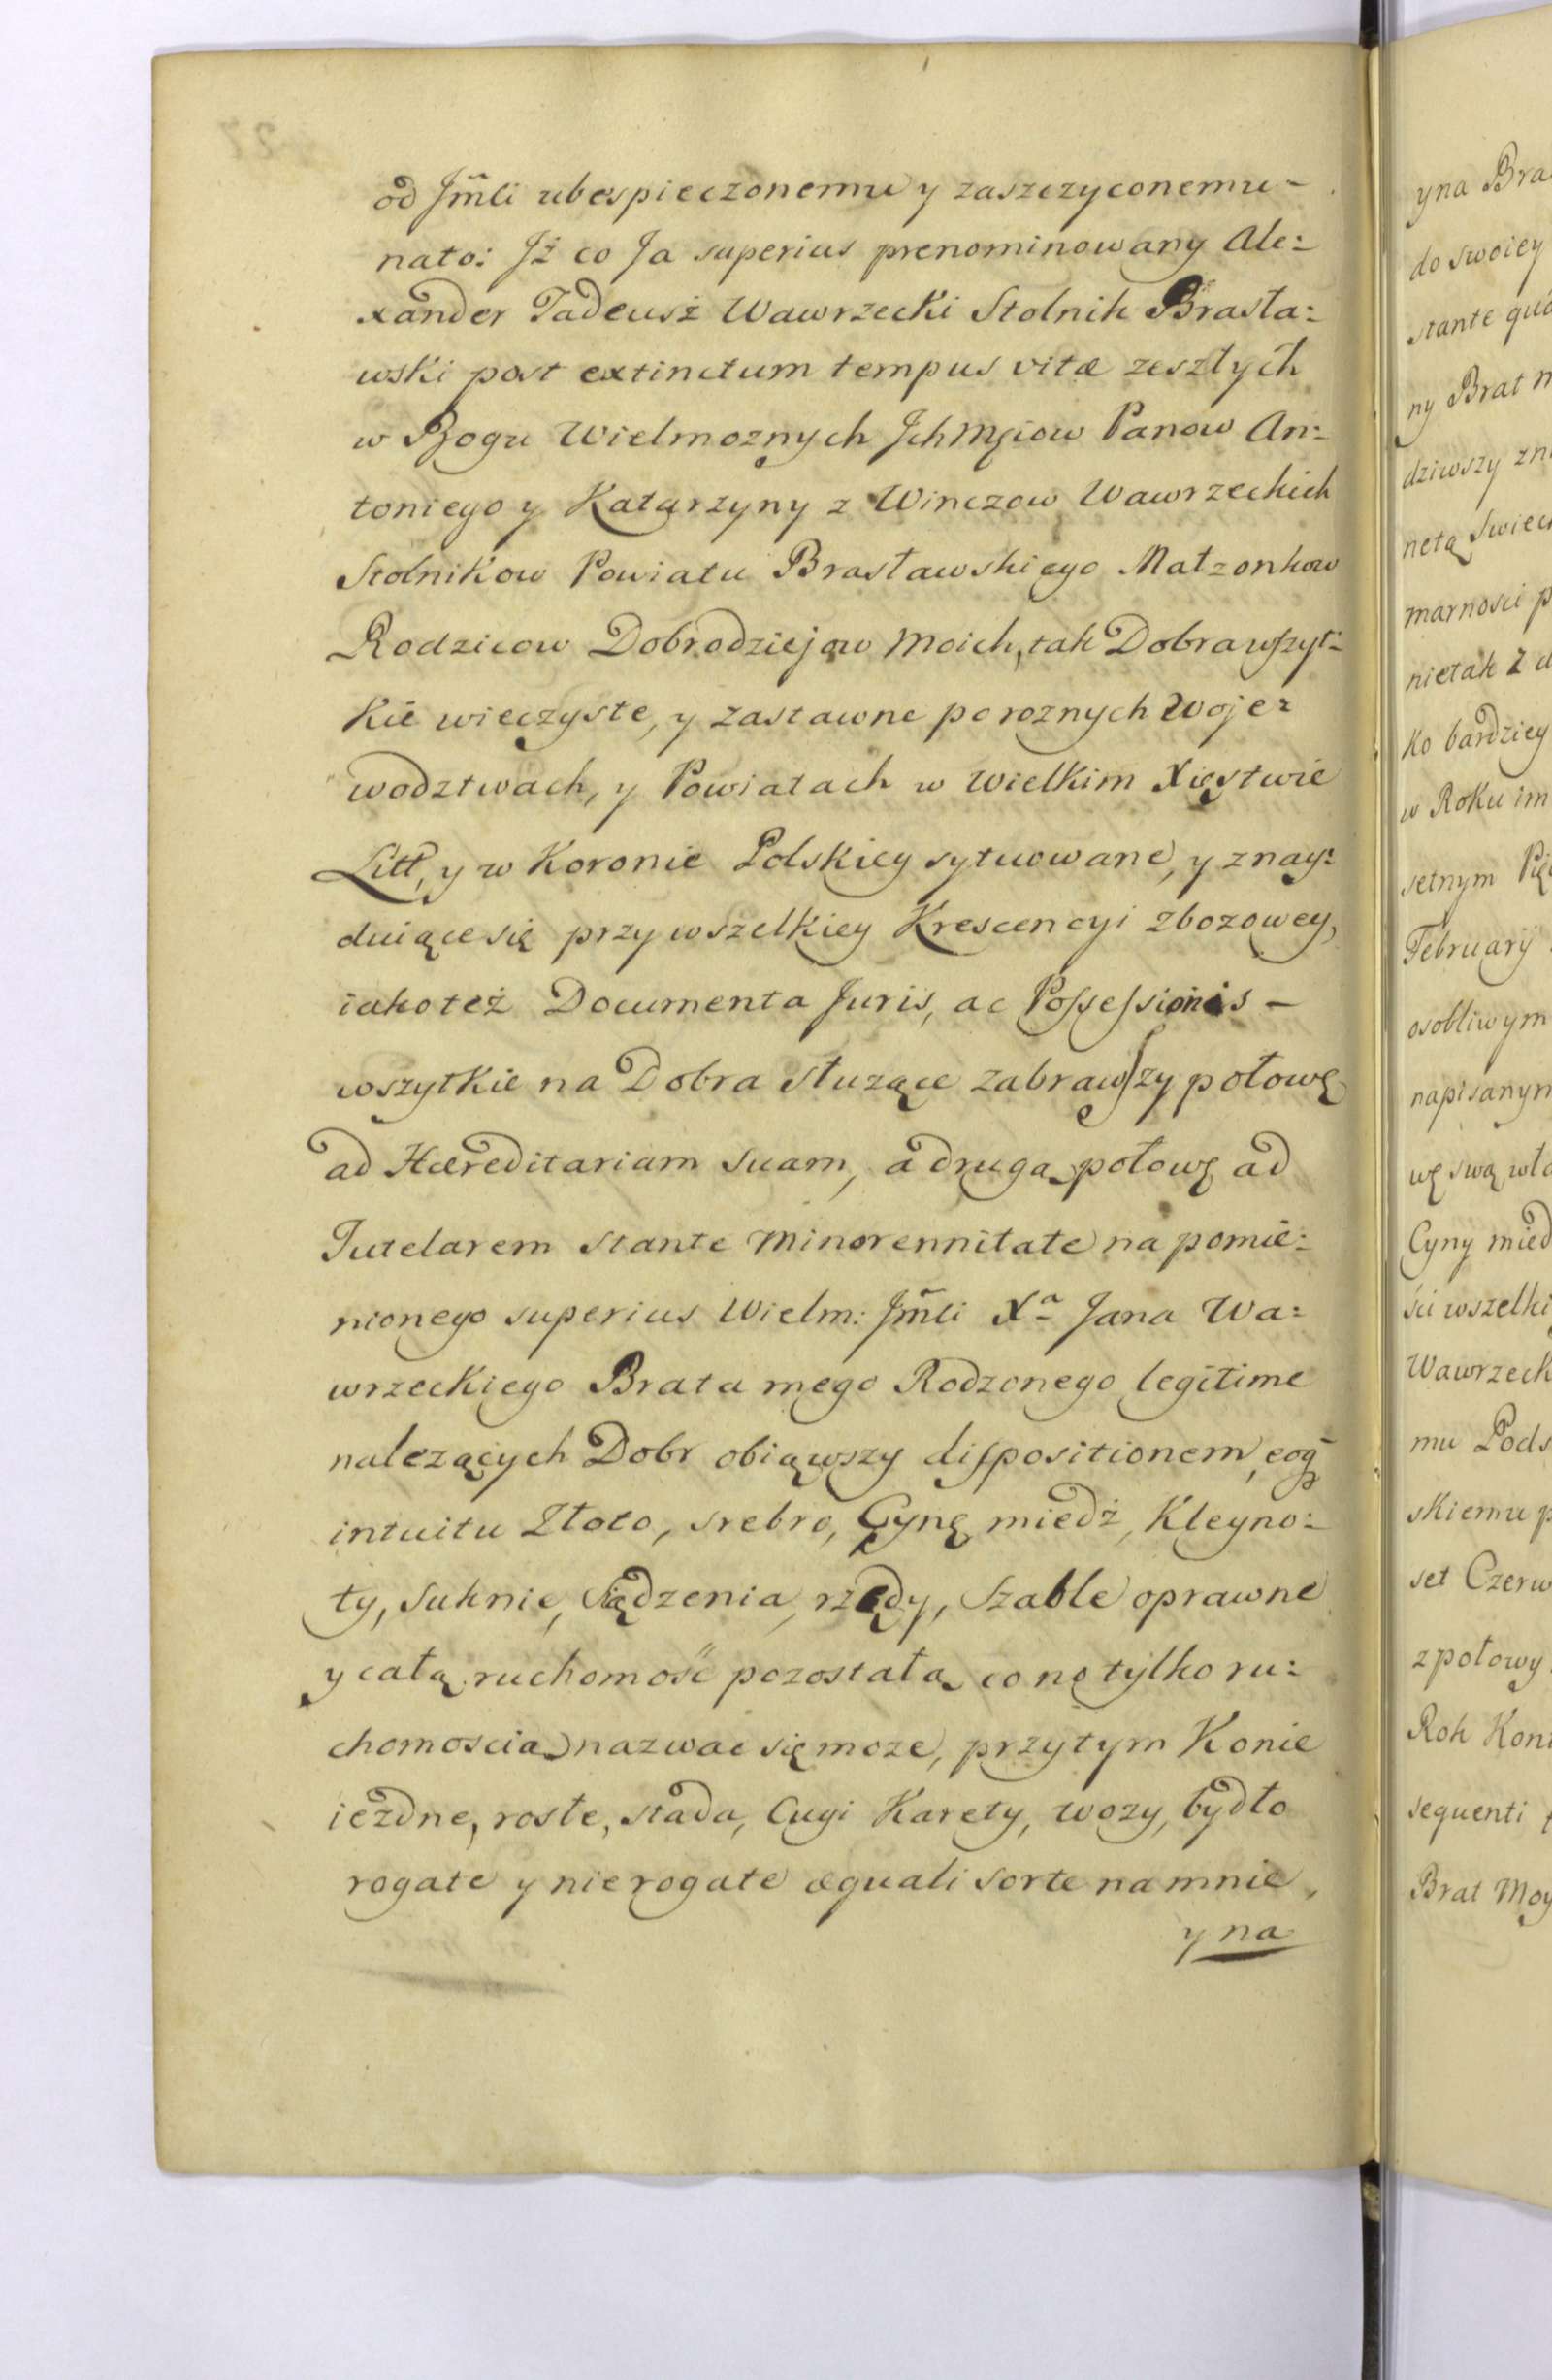 od Jm̃ci ubespieczonemu y zaszczyconemu –
na to: Jż co Ja superius prenominowany Ale:
xander Tadeusz Wawrzecki Stolnik Brasła:
wski post extinctum tempus vitæ zeszłych
w Bogu Wielmoznych Jchmςiow Panow An:
toniego y Katarzyny z Winczow Wawrzeckich
Stolnikow Powiatu Brasławskiego Małzonkow
Rodzicow Dobrodziejow moich, tak Dobra wszyt:
kie wieczyste, y zastawne po roznych Woje:
wodztwach, y Powiatach w Wielkim Xięstwie
Litt, y w Koronie Polskiey sytuowane, y znay:
duiące się przy wszelkiey Krescencyi zbozowey,
iako też Documenta Juris, ac Possessionis –
wszytkie na Dobra słuzące zabrawszy połowę
ad Hæreditariam suam, a drugą połowę ad
Tutelarem stante minorennitate na pomie:
nionego superius Wielm: Jm̃ci Xa Jana Wa:
wrzeckiego Brata mego Rodzonego legitime
nalezących Dobr obiąwszy dispositionem, eoq̃
intuitu Złoto, srebro, Cynę miedź, Kleyno:
ty, suknie, siądzenia, rzędy, Szable oprawne
y całą ruchomość pozostałą co no tylko ru:
chomoscią nazwac się moze, przytym Konie
iezdne, rosłe, stada, Cugi Karety, wozy, bydło
rogate y nierogate æquali sorte na mnie,
y na
yna Bra
do swoiey
stante
ny Brat
dziwszy
netą Swiec
marnosci p
nietak Z
ko bardziey
w Roku im
setnym
February
osobliwym
napisanym
wę swą
Cyny mied
ści wszelki
Wawrzeck
mu Pods
skiemu p
set Czerw
z połowy
Rok Kon
sequenti
Brat Moy